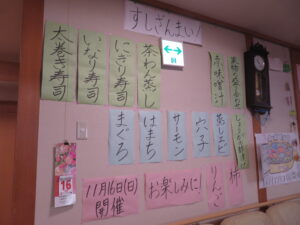 すしざんまい!
茶わん蒸し
にぎり寿司
いなり寿司
太巻き寿司
赤味噌汁
蒸しエビ
穴子
サーモン
はまち
まぐろ
柿
りんご
お楽しみに!
11月16日(日)
開催
16